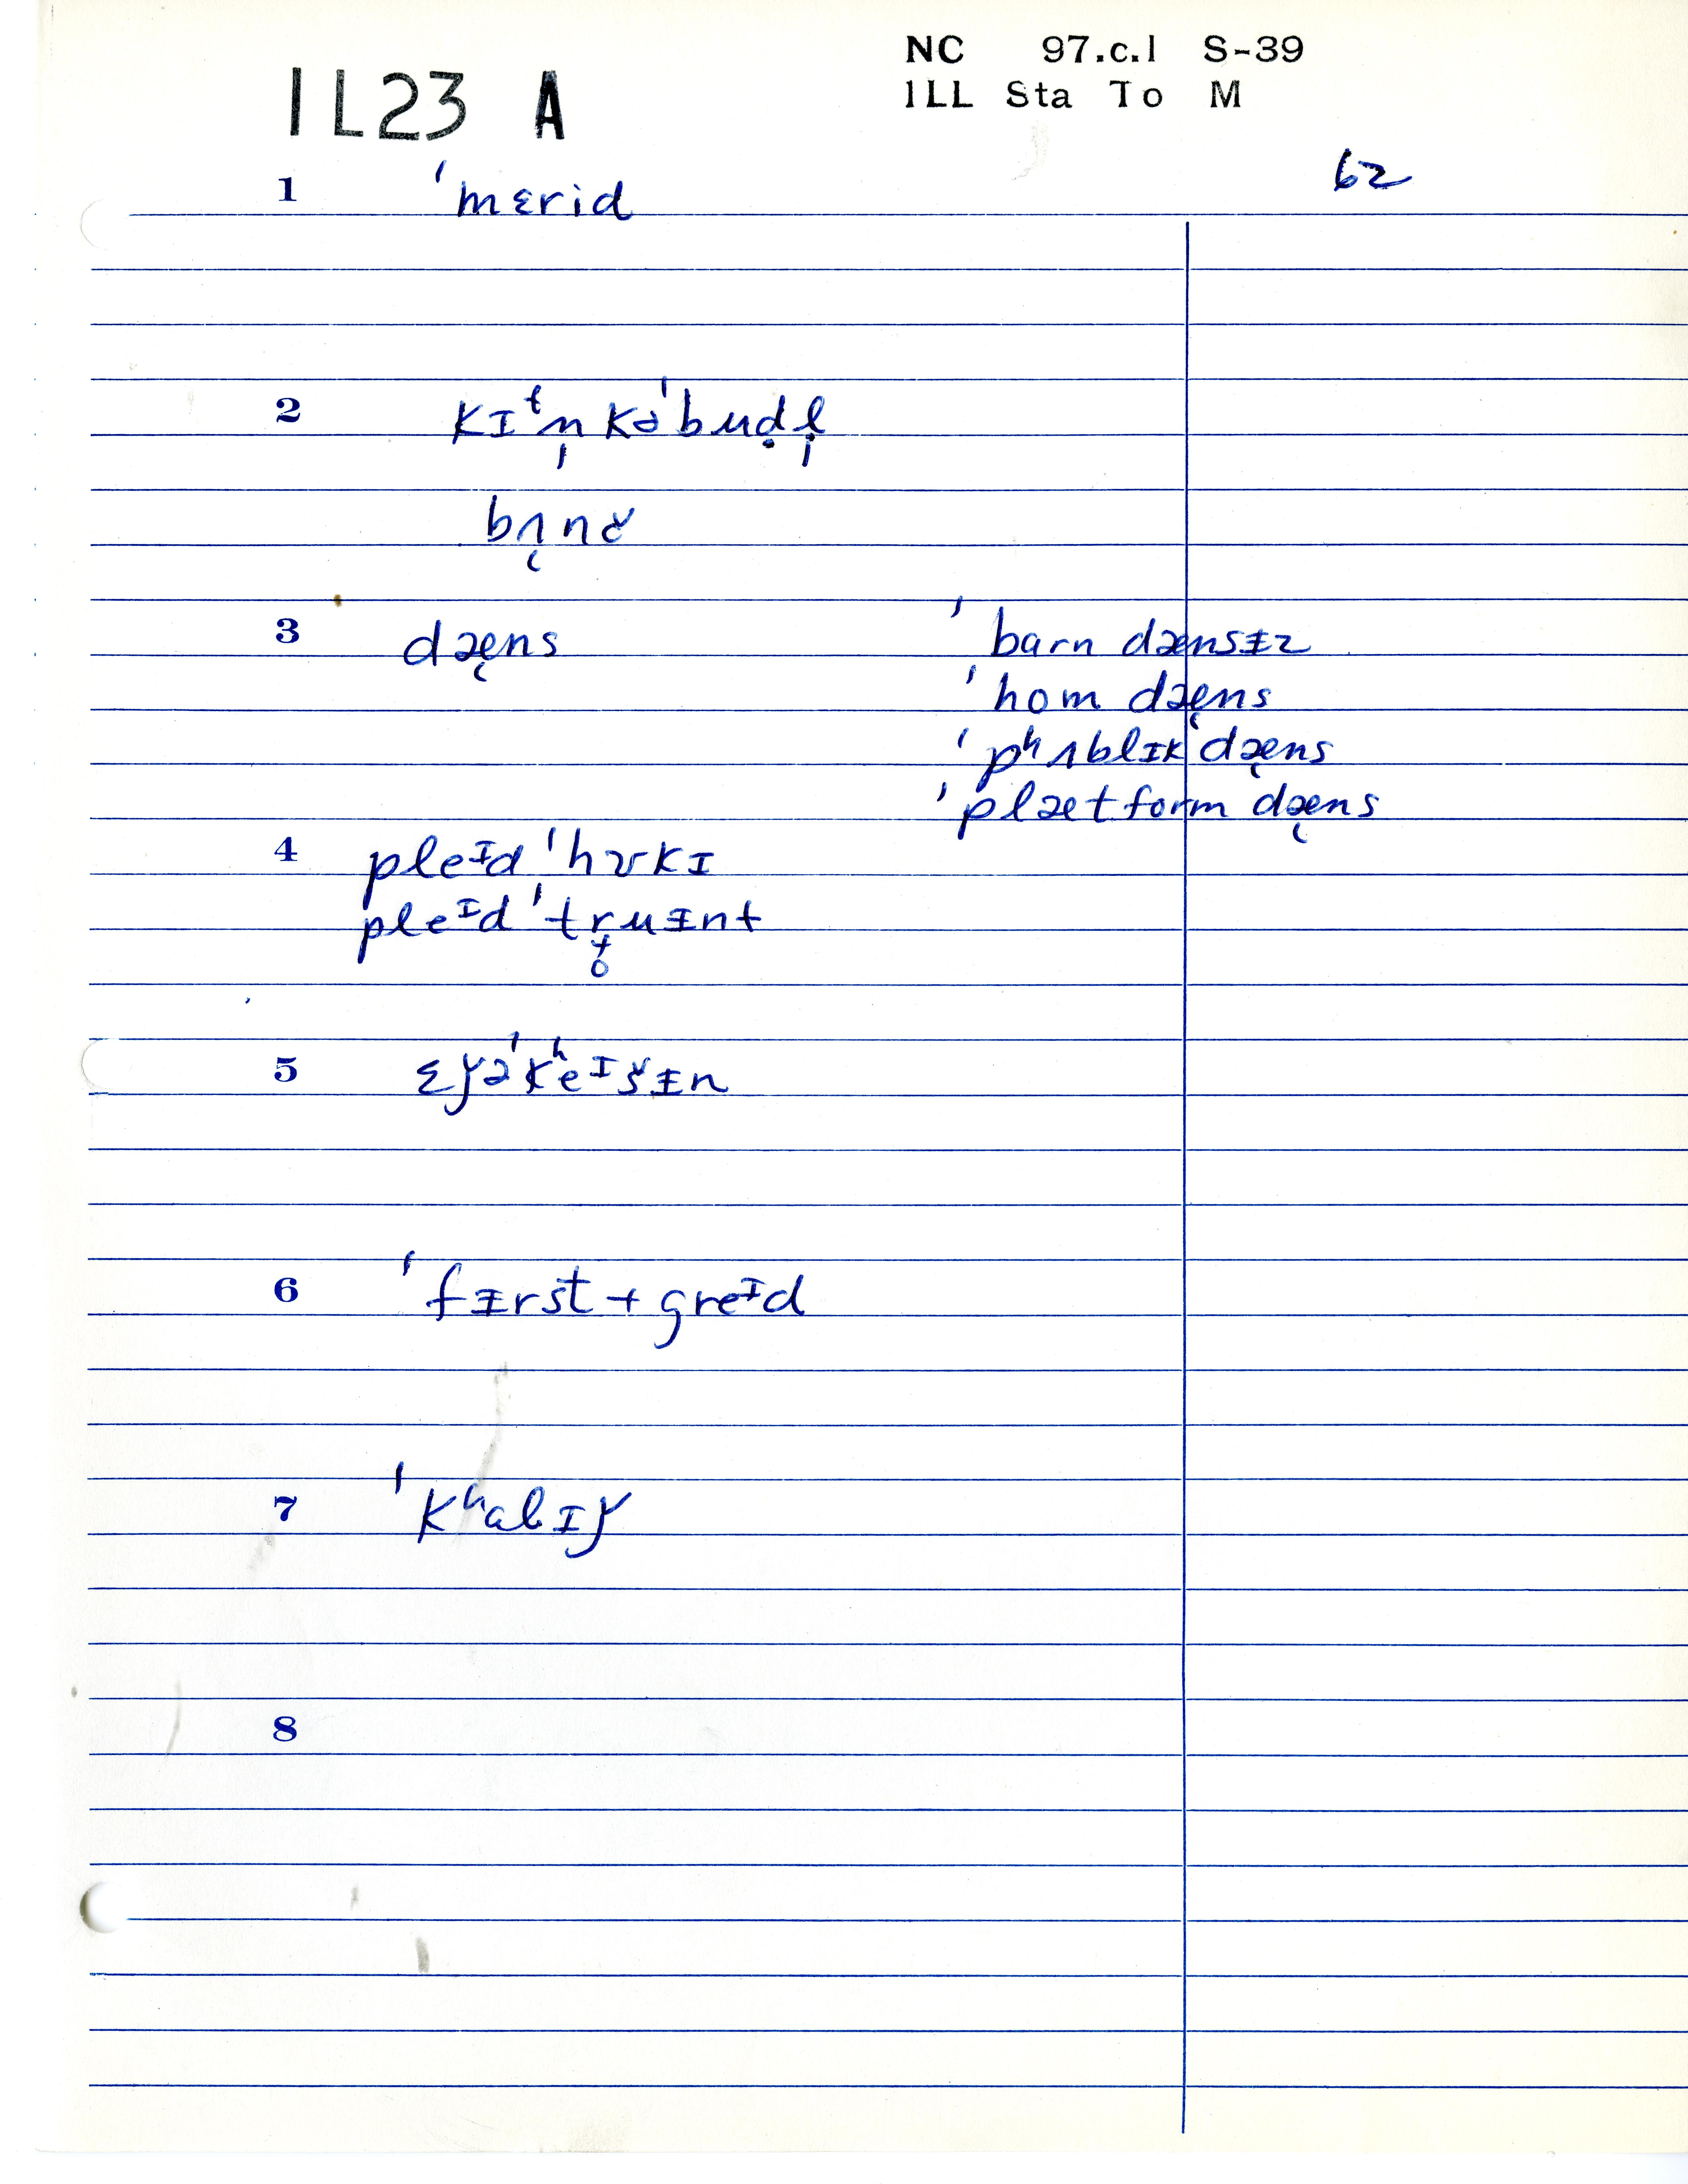 NC 97.c.1 S-39
1LL Sta To M
1L23 A
62
1 ˈmɛrid
2 kɪᵗn̩ kəˈbuḍl̩
bʌ̨nɚ
3 dæ̨ns
ˈbarn dænsɨz
ˈhom dæ̨ns
ˈpʰʌblɪk dæ̨ns
ˈplætform dæ̨ns
4 pleᶦd ˈhʊkɪ
pleᶦd ˈtr̥uɨnt
5 ɛǰəˈkʰeᶦšɨn
6 ˈfɨrst + greᶦd
7 ˈkʰalɪǰ
8